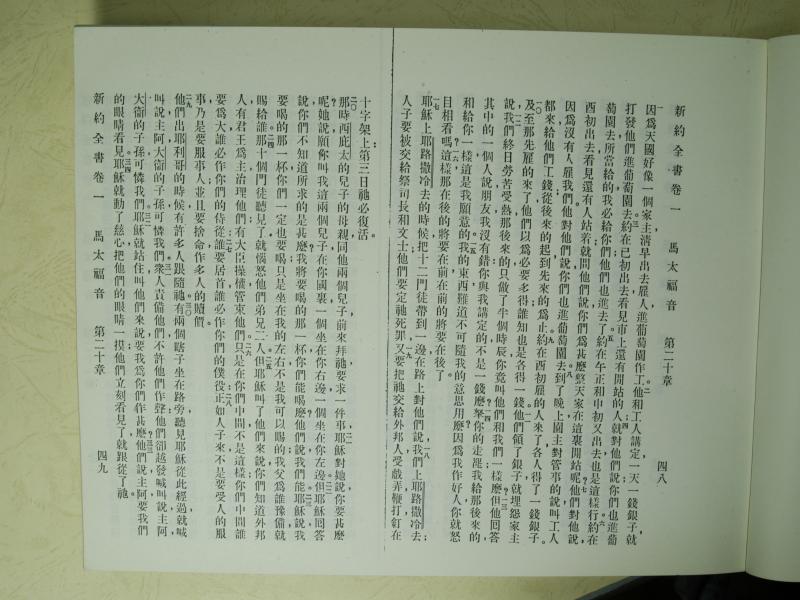 新約全書卷一　馬太福音　第二十章　四八
因爲天國好像一個家主淸早出去雇人進葡萄園作工他和工人講定一天一錢銀子就
打發他們進葡萄園去約在已初出去看見市上還有閒站的人就對他們說你們也進葡
萄園去所當給的我必給你們他們也進去了約在午正和申初又出去也是這樣行約在
酉初出去看見還有人站着就問他們說你們爲甚麼整天家在這裏閒站呢他們對他說
因爲沒有人雇我們他對他們說你們也進葡萄園去到了晚上園主對管事的說叫工人
都來給他們工錢從後來的起到先來的爲止約在酉初雇的人來了各人得了一錢銀子
及至那先雇的來了他們以爲必要多得誰知也是各得一錢他們領了銀子就埋怨家主
說我們終日勞苦受熱那後來的只做了半個時辰你竟叫他們和我們一樣麼但他回答
其中的一個人說朋友我沒有錯你與我講定的不是一錢麼拏你的走罷我給那後來的
和給你一樣這是我願意的我的東西難道不可隨我的意思用麼因爲我作好人你就怒
目相看嗎這樣那在後的將要在前在前的將要在後了
耶穌上耶路撒冷去的時候把十二門徒帶到一邊在路上對他們說我們上耶路撒冷去
人子要被交給祭司長和文士他們要定祂死罪又要把祂交給外邦人受戲弄鞭打釘在
十字架上第三日祂必復活
那時西庇太的兒子的母親同他兩個兒子前來拜祂要求一件事耶穌對她說你要甚麼
呢她說願你叫我這兩個兒子在你國裏一個坐在你右邊一個坐在你左邊但耶穌回答
說你們不知道所求的是甚麼我將要喝的那一杯你們能喝麼他們說我們能耶穌說我
要喝的那一杯你們一定也要喝只是坐在我的左右不是我可以賜的我父爲誰豫備就
賜給誰那十個門徒聽見了就惱怒他們弟兄二人但耶穌叫了他們來說你們知道外邦
人有君王爲主治理他們有大臣操權管束他們只是在你們中間不是這樣你們中間誰
要爲大誰必作你們的侍從誰要居首誰必作你們的僕役正如人子來不是要受人的服
事乃是要服事人並且要捨命作多人的贖價
他們出耶利哥的時候有許多人跟隨祂有兩個瞎子坐在路旁聽見耶穌從此經過就喊
叫說主阿大衞的子孫可憐我們衆人責備他們不許他們作聲他們卻越發喊叫說主阿
大衞的子孫可憐我們耶穌就站住叫他們來說要我爲你們作甚麼他們說主阿要我們
的眼睛看見耶穌就動了慈心把他們的眼睛一摸他們立刻看見了就跟從了祂
新約全書卷一　馬太福音　第二十章　四九